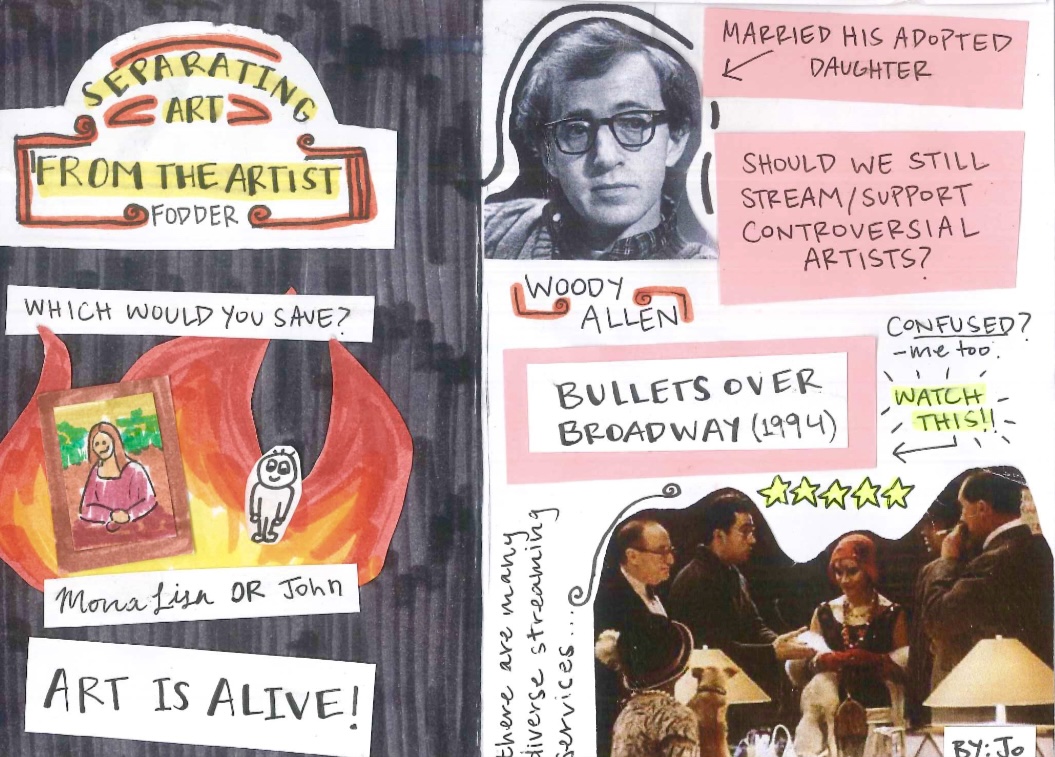 SEPARATING
ART
FROM THE ARTIST
FODDER
WHICH WOULD YOU SAVE?
Mona Lisa OR John
ART IS ALIVE!
MARRIED HIS ADOPTED
DAUGHTER
SHOULD WE STILL
STREAM/SUPPORT
CONTROVERSIAL
ARTISTS?
WOODY
ALLEN
CONFUSED?
-me too.
WATCH
THIS!!
BULLETS OVER
BROADWAY (1994)
there are many
diverse streaming
services...
BY: Jo